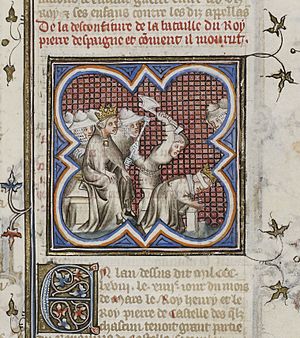 Roy & ses enfans contre les diz appellas
De la desconfiture de la bataille du Roy
pierre despaigne et coment il mourut.
En lan dessus dit mil ccc
lxviij. le xiiij. iour du mois
de Mars le Roy henry et le
Roy pierre de Castelle des qlz
chascun tenoit grant partie